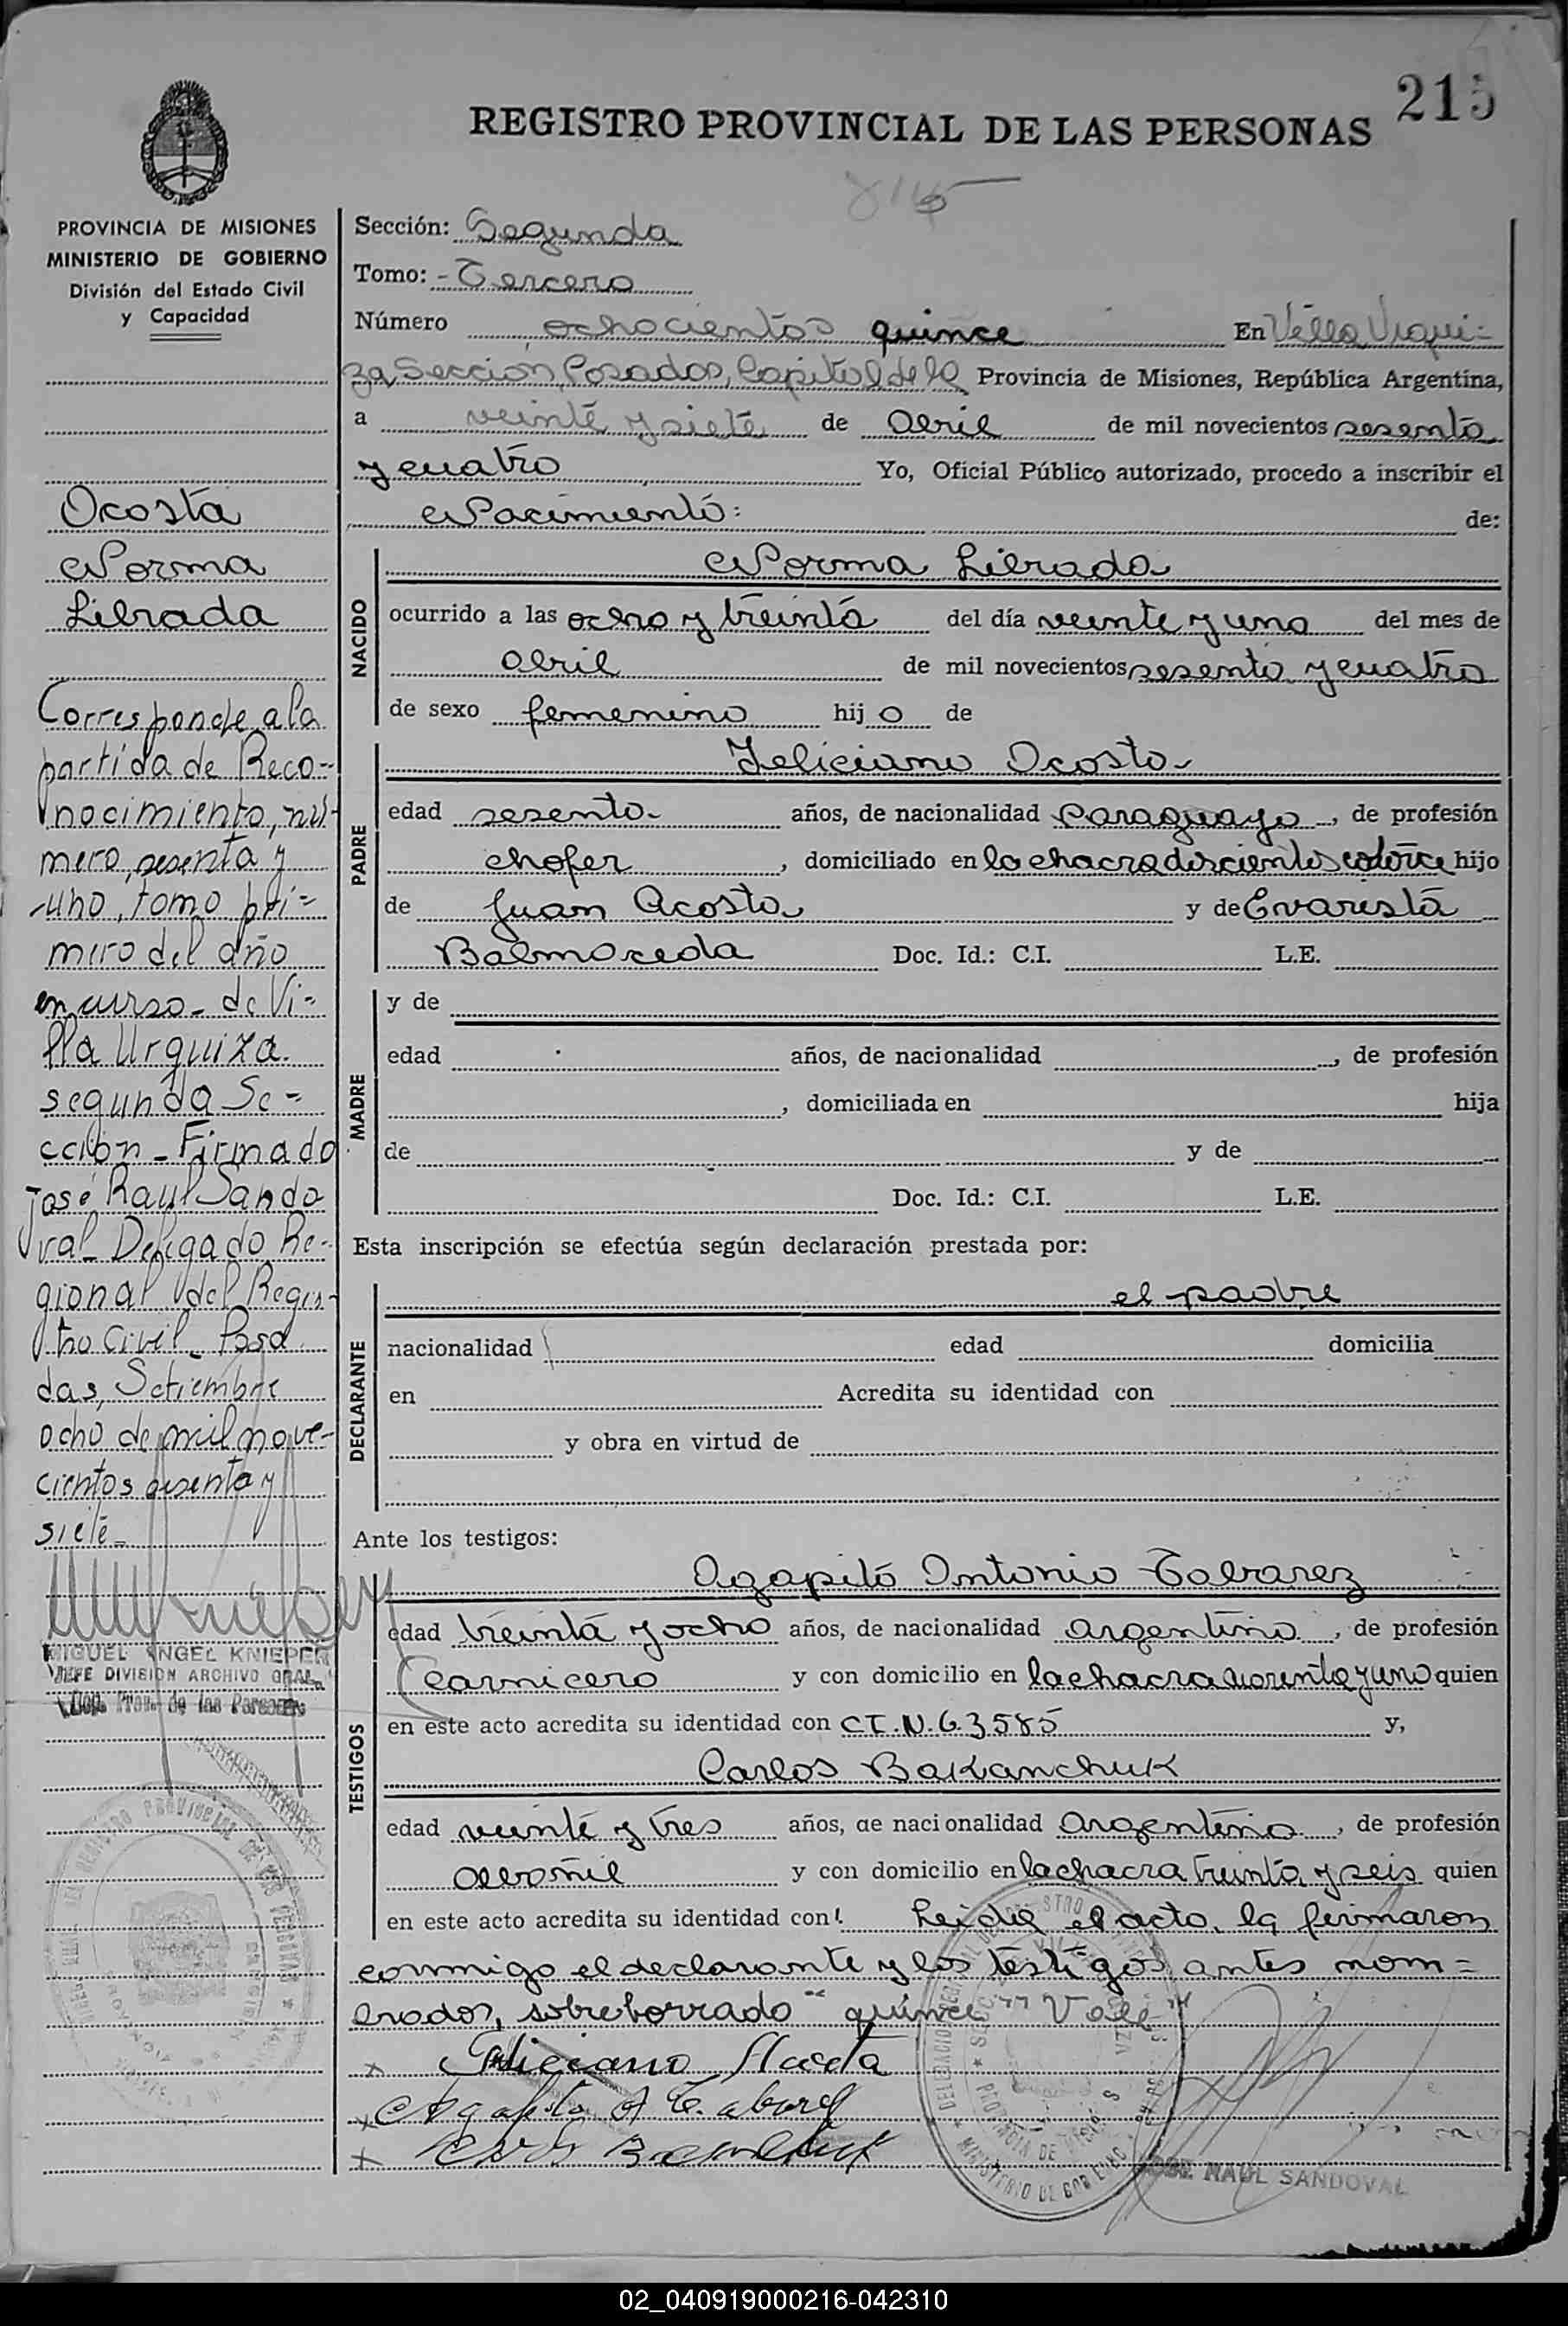 215
REGISTRO PROVINCIAL DE LAS PERSONAS
815
PROVINCIA DE MISIONES
MINISTERIO DE GOBIERNO
División del Estado Civil
y Capacidad
Acosta
Norma
Librada
Corresponde a la
partida de Reco-
nocimiento, nú-
mero, sesenta y
uno, tomo pri-
mero del año
en curso - de Vi-
lla Urquiza.
segunda Se-
cción - Firmado
José Raul Sando
val - Delegado Re-
gional del Regis-
tro Civil - Posa
das, Setiembre
ocho de mil nove-
cientos sesenta y
siete -
MIGUEL ANGEL KNIEPER
JEFE DIVISION ARCHIVO GRAL.
Reg. Prov. de las Personas
Sección: Segunda
Tomo: - Tercero
Número ochocientos quince En Villa Urqui-
za Sección, Posadas, Capital de la Provincia de Misiones, República Argentina,
a veinte y siete de Abril de mil novecientos sesenta
y cuatro Yo, Oficial Público autorizado, procedo a inscribir el
Nacimiento: de:
NACIDO
Norma Librada
ocurrido a las ocho y treinta del día veinte y uno del mes de
Abril de mil novecientos sesenta y cuatro
de sexo femenino hij a de
PADRE
Feliciano Acosta
edad sesenta años, de nacionalidad Paraguaya, de profesión
chofer, domiciliado en la chacra doscientos catorce hijo
de Juan Acosta y de Evarista
Balmaceda Doc. Id.: C.I. L.E.
MADRE
y de
edad años, de nacionalidad , de profesión
, domiciliada en hija
de y de
Doc. Id.: C.I. L.E.
Esta inscripción se efectúa según declaración prestada por:
DECLARANTE
el padre
nacionalidad edad domicilia
en Acredita su identidad con
y obra en virtud de
Ante los testigos:
TESTIGOS
Agapito Antonio Tabarez
edad treinta y ocho años, de nacionalidad Argentina, de profesión
Carnicero y con domicilio en la chacra noventa y uno quien
en este acto acredita su identidad con C.I. N. 63585 y,
Carlos Baklanchuk
edad veinte y tres años, de nacionalidad Argentina, de profesión
Albañil y con domicilio en la chacra treinta y seis quien
en este acto acredita su identidad con: Leída el acta, la firmaron
conmigo el declarante y los testigos antes nom-
brados, sobreborrado "quince" "Vale"
x Feliciano Acosta
x Agapito A Tabarez
x
JOSE RAUL SANDOVAL
02_040919000216-042310